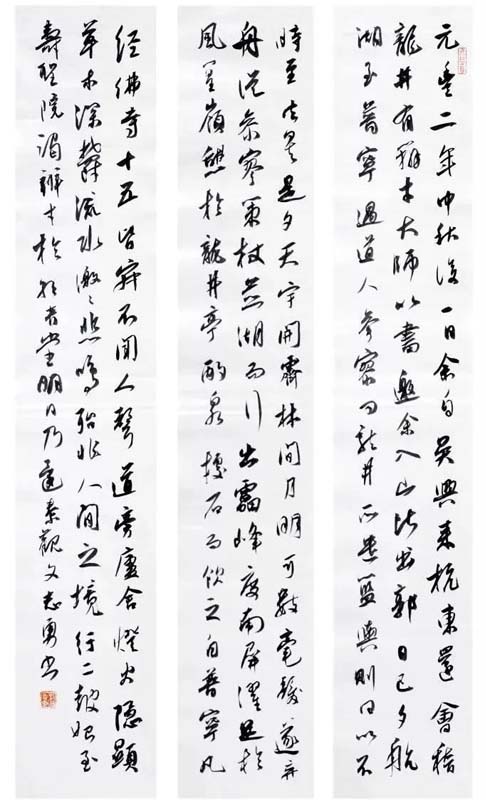 元豐二年仲秋後一日余自吳興來杭東還會稽
龍井有辨才大師以書邀余入山比出郭日已夕航
湖至普寧遇道人參寥問龍井所遣籃輿則曰以不
時至去矣是夕天宇開霽林間月明可數毫髮遂棄
舟從參寥策杖並湖而行出雷峰度南屏濯足於
風篁嶺憩於龍井亭酌泉據石而飲之自普寧凡
經佛寺十五皆寂不聞人聲道旁廬舍燈火隱顯
草木深鬱流水激々悲鳴殆非人間之境行二鼓始至
壽聖院謁辨才於朝音堂明日乃還秦觀文志勇書